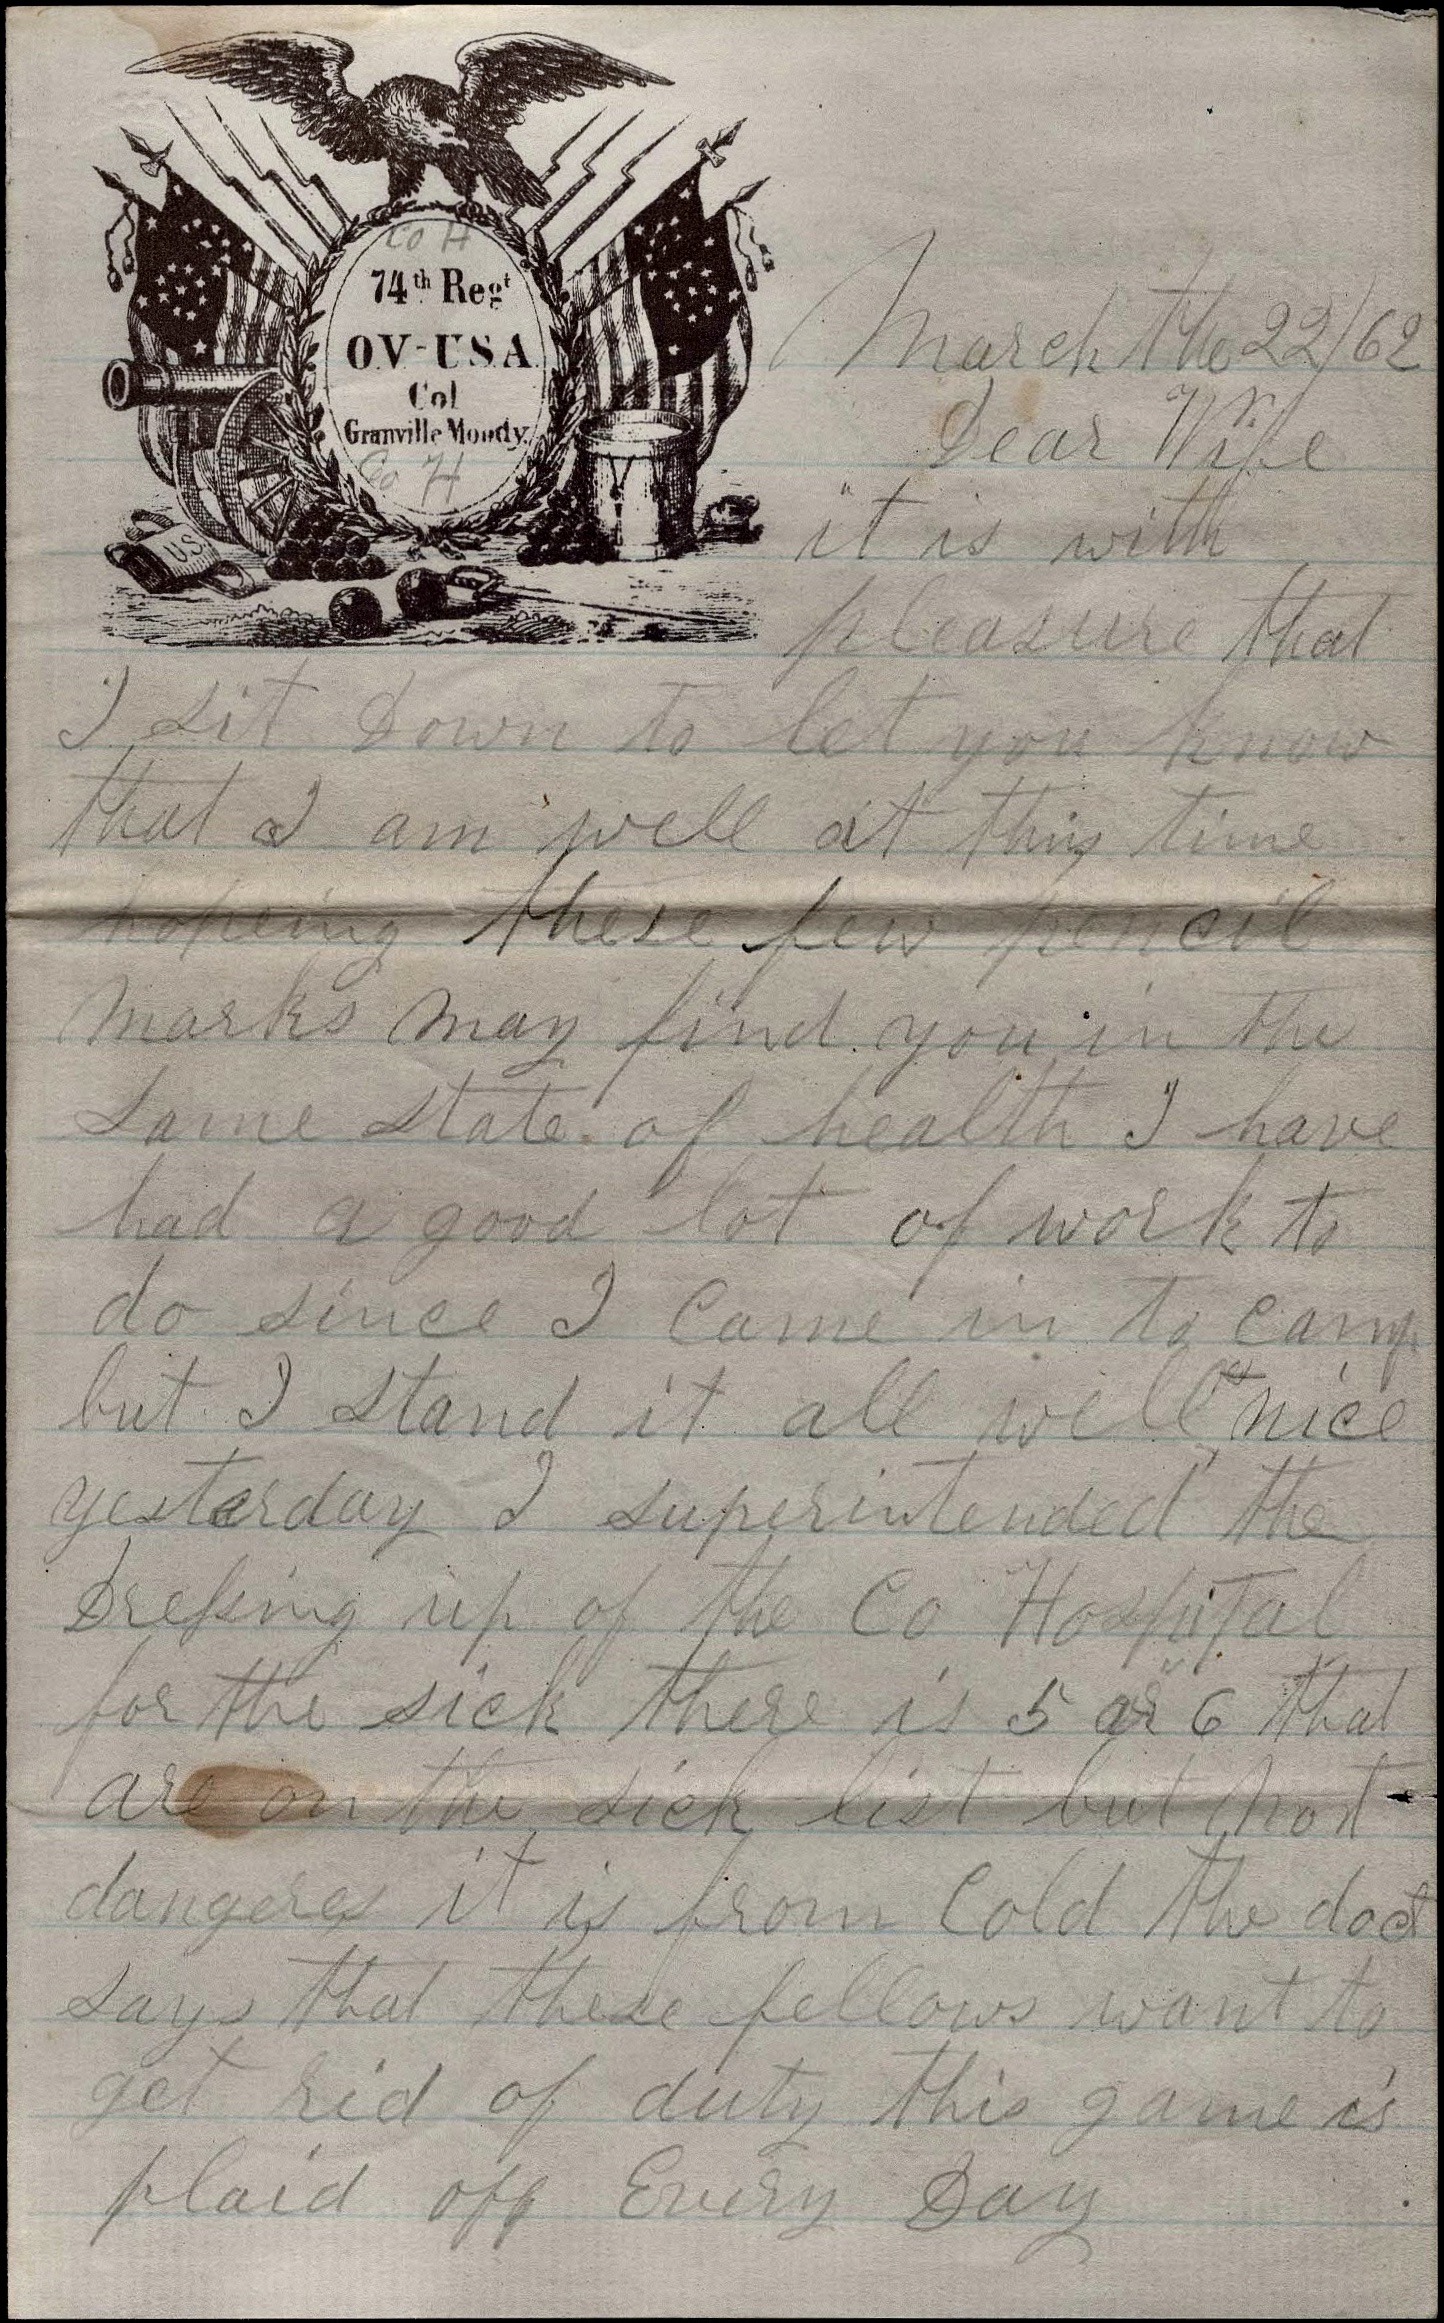 Co H
74th Regt
OV-USA
Col
Granville Moody
Co H
US
March the 22/62
Dear Wife
it is with
pleasure that
I sit Down to let you know
that I am well at this time
hopeing these few pencil
marks may find you in the
same state of health I have
had a good lot of work to
do since I Came in to camp
but I stand it all well nice
yesterday I superintended the
Dressing up of the Co Hospital
for the sick there is 5 or 6 that
are on the sick list but not
dangeres it is from Cold the doct
says that these fellows want to
get rid of duty this game is
plaid off Every Day